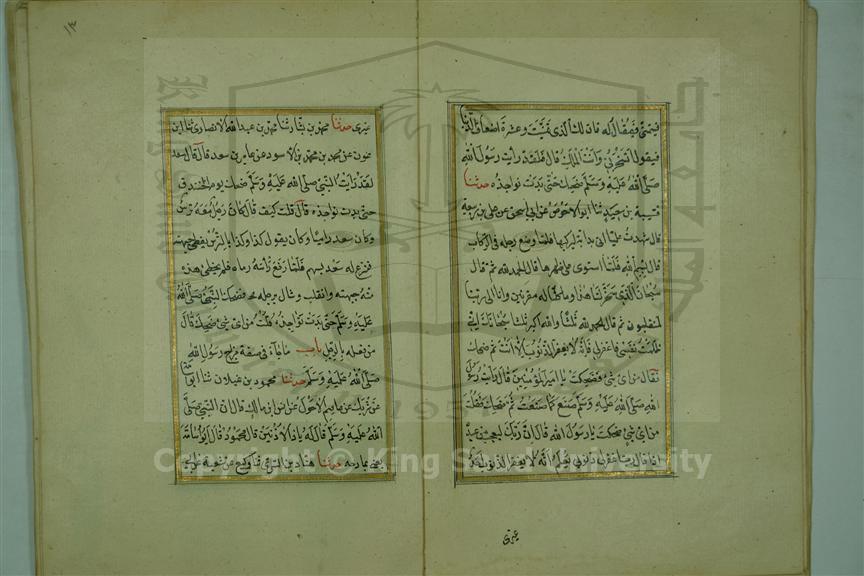 فيتمنى فيقال له فان لك الذي تمنيت وعشرة اضعاف الدنيا
فيقول اتسخر بي وانت الملك قال فلقد رأيت رسول الله
صلى الله عليه وسلم ضحك حتى بدت نواجذه حدثنا
قتيبة بن سعيد ثنا ابو الاحوص عن ابي اسحق عن علي بن ربيعة
قال شهدت عليا اتي بدابة ليركبها فلما وضع رجله في الركاب
قال بسم الله فلما استوى على ظهرها قال الحمد لله ثم قال
سبحان الذي سخر لنا هذا وما كنا له مقرنين وانا الى ربنا
لمنقلبون ثم قال الحمد لله ثلثا والله اكبر ثلثا سبحانك اني
ظلمت نفسي فاغفر لي فانه لا يغفر الذنوب الا انت ثم ضحك
فقال من اي شي ضحكت يا امير المؤمنين قال رأيت رسول
الله صلى الله عليه وسلم صنع كما صنعت ثم ضحك فقلت
من اي شي ضحكت يا رسول الله قال ان ربك ليعجب من عبده
اذا قال رب اغفر لي ذنوبي يعلم انه لا يغفر الذنوب احد
غيري
١٣
غيري حدثنا محمد بن بشار ثنا محمد بن عبد الله الانصاري ثنا ابن
عون عن محمد بن محمد بن الاسود عن عامر بن سعد قال قال سعد
لقد رأيت النبي صلى الله عليه وسلم ضحك يوم الخندق
حتى بدت نواجذه قال قلت كيف قال كان رجل معه ترس
وكان سعد راميا وكان يقول كذا وكذا بالترس يغطي جبهته
فنزع له سعد بسهم فلما رفع رأسه رماه فلم يخطئ هذه
منه جبهته وانقلب وشال برجله فضحك النبي صلى الله
عليه وسلم حتى بدت نواجذه قلت من اي شي ضحك قال
من فعله بالرجل باب ما جاء في صفة مزاح رسول الله
صلى الله عليه وسلم حدثنا محمود بن غيلان ثنا ابو اسامة
عن شريك عن عاصم الاحول عن انس ابن مالك قال ان النبي صلى
الله عليه وسلم قال له يا ذا الاذنين قال محمود قال ابو اسامة
يعني يمازحه حدثنا هناد بن السري ثنا وكيع عن شعبة عن ابي
Copyright © King Saud University
1957